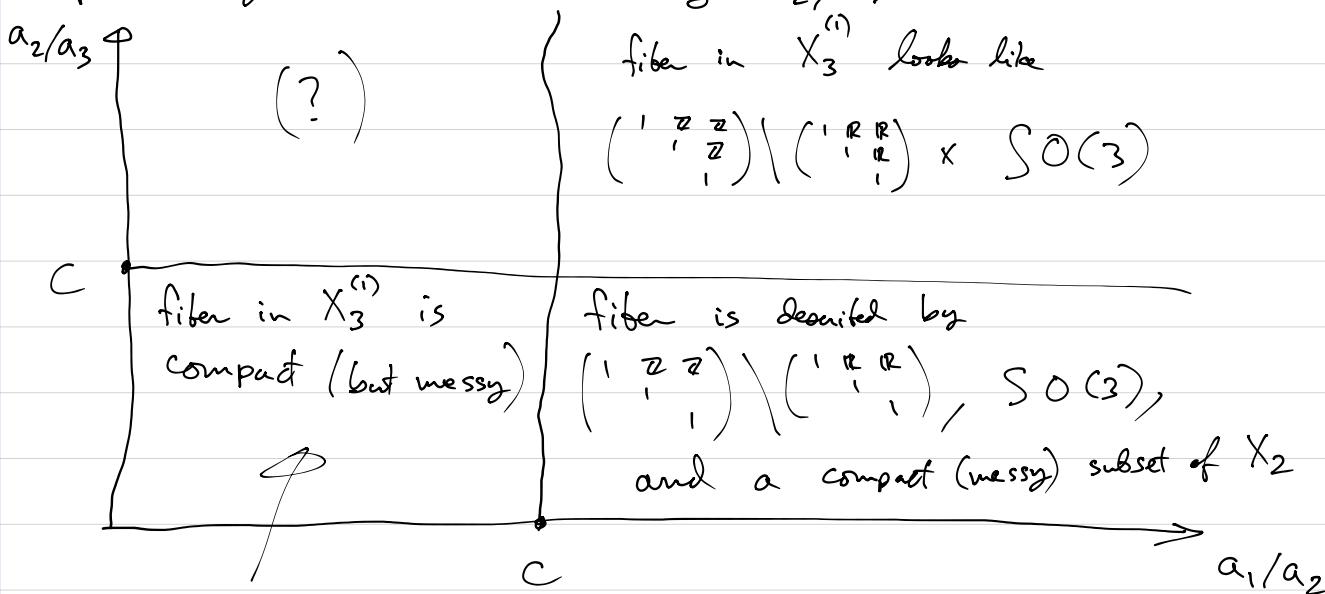 a₂/a₃
(?)
fiber in X₃⁽¹⁾ looks like
( 1 ℤ ℤ
1 ℤ
1 ) \ ( 1 ℝ ℝ
1 ℝ
1 ) × SO(3)
C
fiber in X₃⁽¹⁾ is
compact (but messy)
fiber is described by
( 1 ℤ ℤ
1
1 ) \ ( 1 ℝ ℝ
1
1 ), SO(3),
and a compact (messy) subset of X₂
C
a₁/a₂